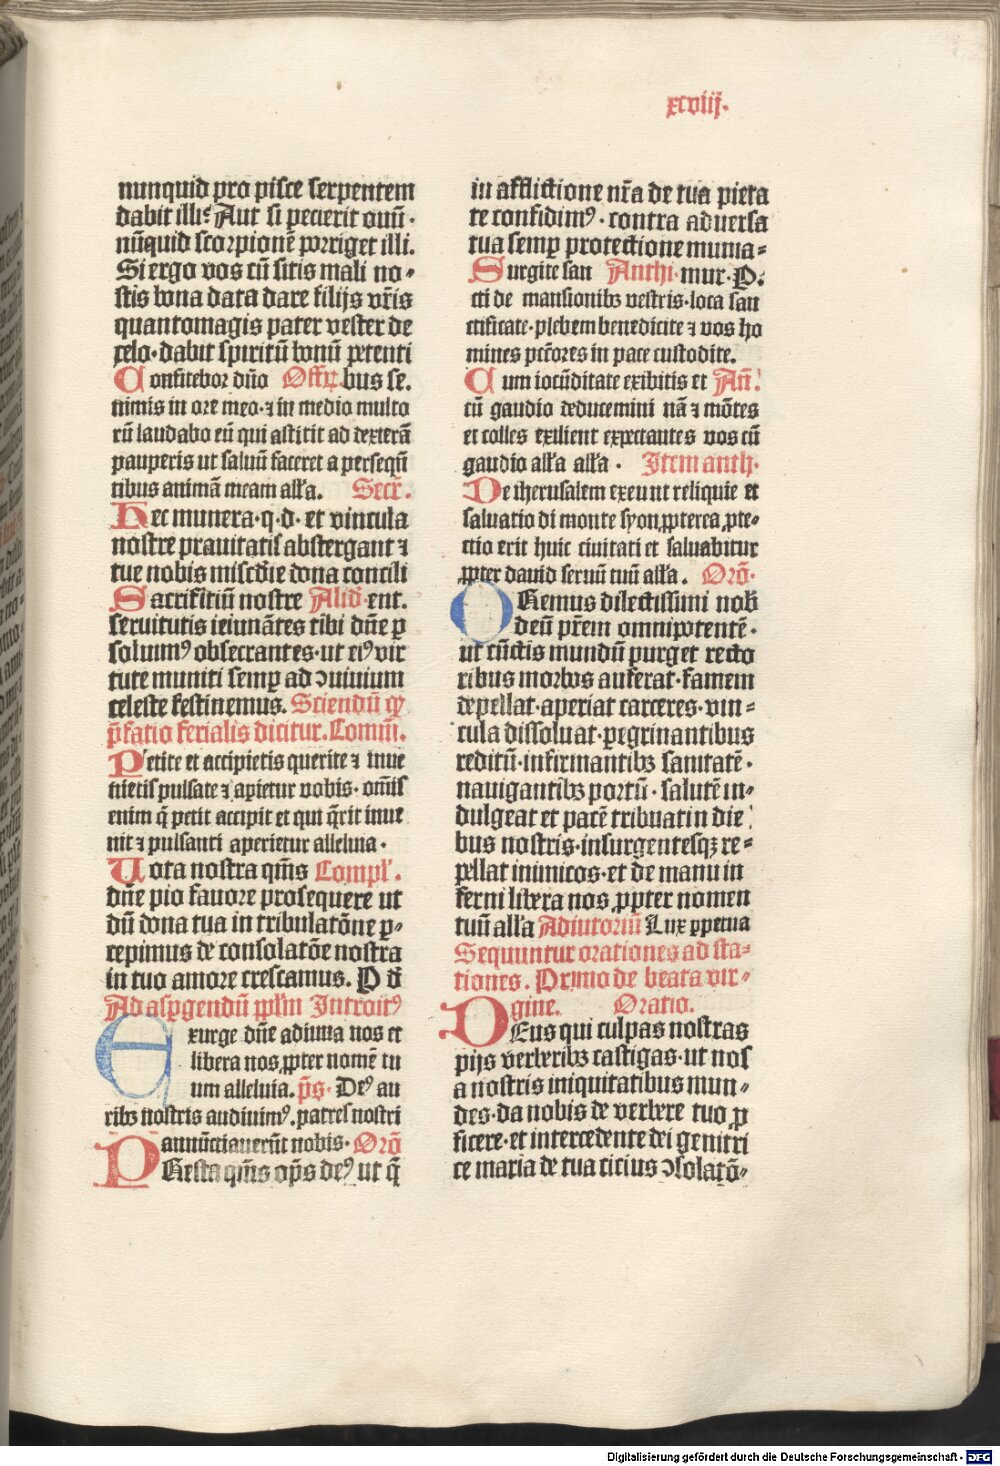 xcviij.
nunquid pro pisce serpentem
dabit illi? Aut si pecierit ouū·
nūquid scorpionē porriget illi.
Si ergo vos cū sitis mali no-
stis bona data dare filijs vr̄is
quantomagis pater vester de
celo·dabit spiritū bonū petenti
Confitebor dn̄o Offr̄. bus se.
nimis in ore meo·⁊ in medio multo
rū laudabo eū qui astitit ad dexterā
pauperis ut saluū faceret a persequē
tibus animā meam all'a. Secr̄.
Hec munera·q·d· et vincula
nostre prauitatis abstergant ⁊
tue nobis miscd'ie dona concili
Sacrifitiū nostre Alid' ent.
seruitutis ieiunātes tibi dn̄e ꝑ
soluimꝰ obsecrantes·ut eiꝰ vir
tute muniti semꝑ ad ↄuiuium
celeste festinemus. Sciendū ꝙ
p̄fatio ferialis dicitur. Com̄ū.
Petite et accipietis querite ⁊ inue
nietis pulsate ⁊ aperietur vobis· om̄is
enim q̄ petit accipit et qui q̄rit inue
nit ⁊ pulsanti aperietur alleluia·
Uota nostra qm̄s Compl'.
dn̄e pio fauore prosequere ut
dū dona tua in tribulatōne ꝑ-
cepimus de consolatōe nostra
in tuo amore crescamus. P d'
Ad aspgendū pplm Introitꝰ
Exurge dn̄e adiuua nos et
libera nos ꝓpter nomē tu
um alleluia. p̄s· Deꝰ au
ribꝫ nostris audiuimꝰ. patres nostri
annūctiauerūt nobis· Orō
PResta qm̄s op̄s deꝰ ut q̄
in afflictione nr̄a de tua pieta
te confidimꝰ· contra aduersa
tua semꝑ protectione munia-
Surgite san Anthi· mur·P.
cti de mansionibꝫ vestris·loca san
ctificate·plebem benedicite ⁊ vos ho
mines pctōres in pace custodite.
Cum iocūditate exibitis et An̄.
cū gaudio deducemini nā ⁊ mōtes
et colles exilient expectantes vos cū
gaudio all'a all'a· Item anth·
De iherusalem exeunt reliquie et
saluatio di monte syon ꝓpterea ꝓte-
ctio erit huic ciuitati et saluabitur
ꝓpter dauid seruū tuū all'a. Orō·
ORemus dilectissimi nob
deū pr̄em omnipotentē·
ut cūctis mundū purget recto
ribus morbos auferat·famem
depellat·aperiat carceres·vin-
cula dissoluat·pegrinantibus
reditū·infirmantibꝫ sanitatē·
nauigantibꝫ portū·salutē in-
dulgeat et pacē tribuat in die
bus nostris·insurgentesqꝫ re-
pellat inimicos·et de manu in
ferni libera nos ꝓpter nomen
tuū all'a Adiutoriū Lux ꝑpetua
Sequuntur orationes ad sta-
tiones. Primo de beata vir-
gine. Oratio.
DEus qui culpas nostras
pijs verberibꝫ castigas·ut nos
a nostris iniquitatibus mun-
des·da nobis de verbere tuo ꝓ
ficere·et intercedente dei genitri
ce maria de tua citius ↄsolatō-
Digitalisierung gefördert durch die Deutsche Forschungsgemeinschaft · DFG